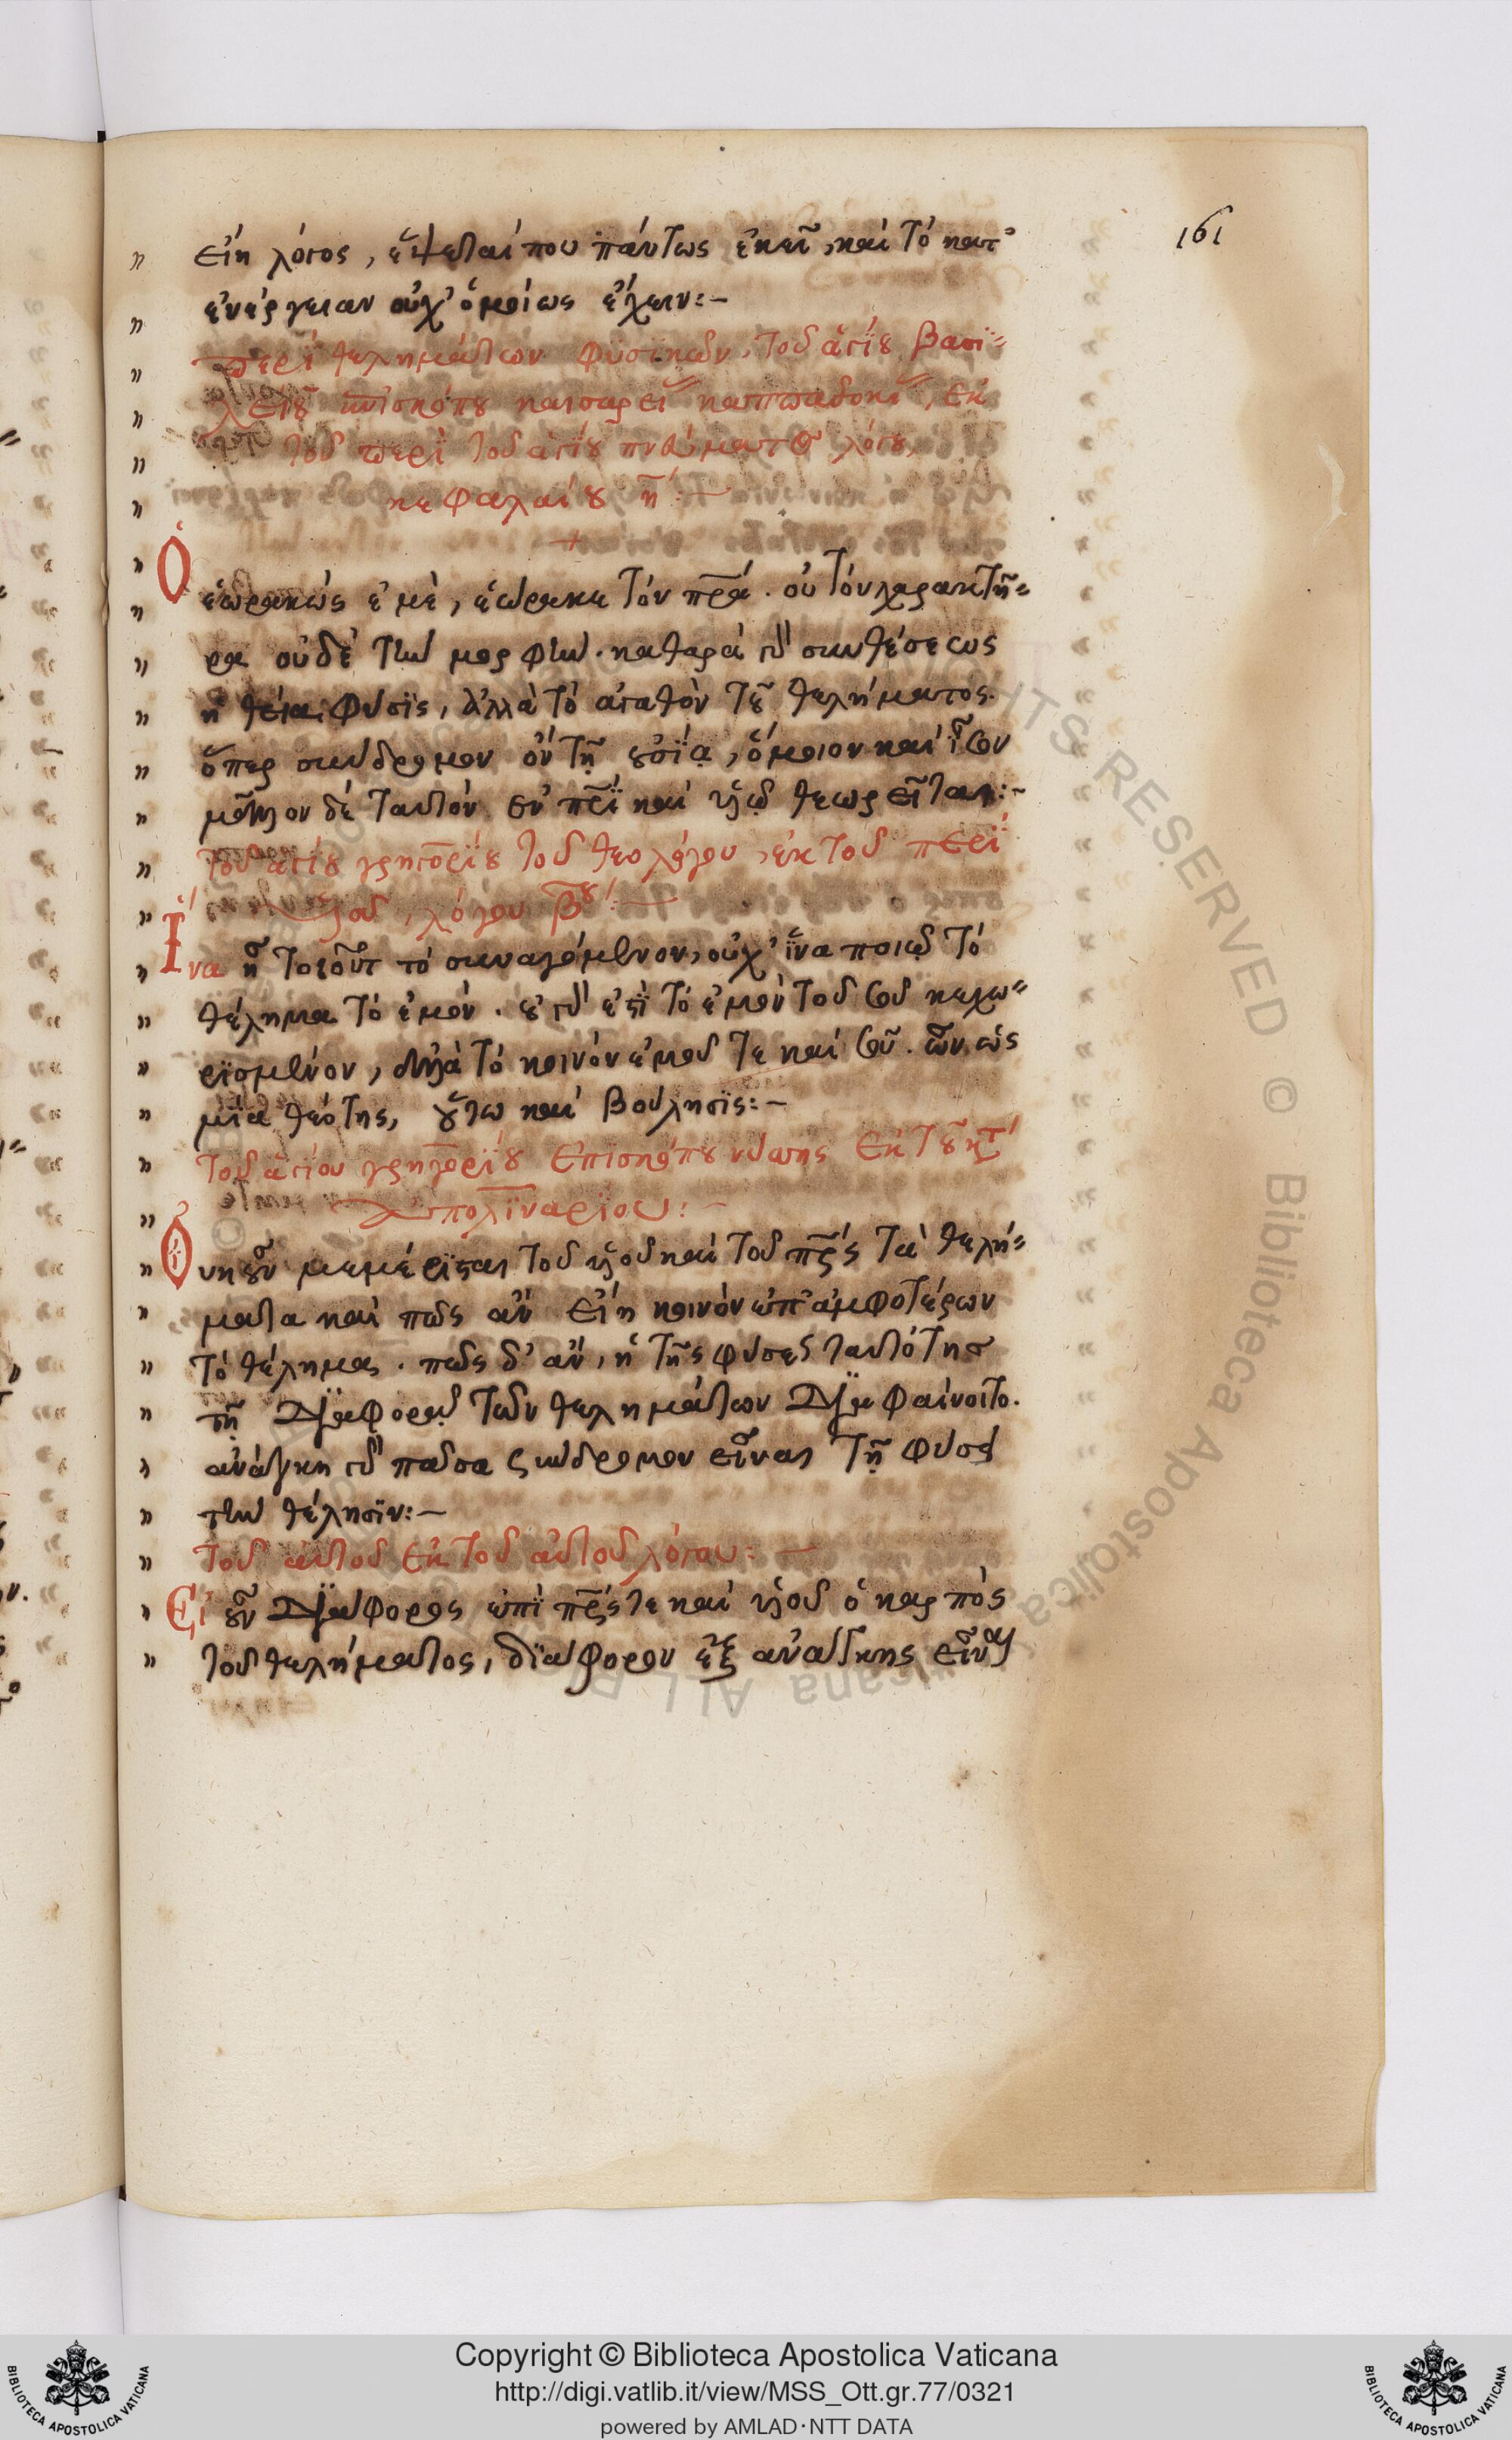 161
εἴη λόγος, ἕψεταί που πάντως ἐκεῖ, καὶ τὸ κατ'
ἐνέργειαν οὐχ' ὁμοίως ἔχειν:-
περὶ θελημάτων φϋσϊκῶν, τοῦ ἁγίου βασϊ=
λείου ἐπισκόπου καισαρεί καππαδοκί, ἐκ
τοῦ περὶ τοῦ ἁγίου πνεύματος λόγου,
κεφαλαίου η:-
Ὁ
ἑωρακὼς ἐμὲ, ἑώρακε τὸν πρα. οὐ τὸν χαρακτῆ=
ρα οὐδὲ τὴν μορφὴν. καθαρὰ γὰρ συνθέσεως
ἡ θεία φύσϊς, ἀλλὰ τὸ ἀγαθὸν τοῦ θελήματος.
ὅπερ σύνδρομον ὂν τῇ οὐσΐᾳ, ὅμοιον καὶ ἶσον
μᾶλλον δὲ ταυτὸν ἐν πρϊ καὶ υἱῷ θεωρεῖται:-
τοῦ ἁγίου γρηγορΐου τοῦ θεολόγου, ἐκ τοῦ περὶ
υἱοῦ, λόγου βου:-
Ἵνα ᾖ τοιοῦτ τὸ συναγόμενον, οὐχ' ἵνα ποιῶ τὸ
θέλημα τὸ ἐμὸν. οὐ γὰρ ἐστὶ τὸ ἐμὸν τοῦ σοῦ κεχω=
ρϊσμένον, ἀλλὰ τὸ κοινὸν ἐμοῦ τε καὶ σοῦ. ὧν, ὡς
μΐα θεότης, οὕτω καὶ βούλησϊς:-
τοῦ ἁγίου γρηγορΐου ἐπισκόπου νύσσης ἐκ τοῦ κτ
ἀπολϊναρΐου:-
Οἱ
νῦν οὖν μεμέρϊσται τοῦ υἱοῦ καὶ τοῦ πρς τὰ θελή=
ματα καὶ πῶς ἂν εἴη κοινὸν ἐπ' ἀμφοτέρων
τὸ θέλημα. πῶς δ' ἂν, ἡ τῆς φύσεως ταυτότησ
τῇ διαφορᾷ τῶν θελημάτων διαφαίνοιτο.
ἀνάγκη γὰρ πᾶσα σύνδρομον εἶναι τῇ φύσει
τὴν θέλησϊν:-
τοῦ αὐτοῦ ἐκ τοῦ αὐτοῦ λόγου:-
Εἰ οὖν διάφορος ἐπὶ πρς τε καὶ υἱοῦ ὁ καρπὸς
τοῦ θελήματος, δϊάφορον ἐξ ἀνάγκης εἶναι
Copyright © Biblioteca Apostolica Vaticana
http://digi.vatlib.it/view/MSS_Ott.gr.77/0321
powered by AMLAD·NTT DATA
BIBLIOTECA APOSTOLICA VATICANA
BIBLIOTECA APOSTOLICA VATICANA